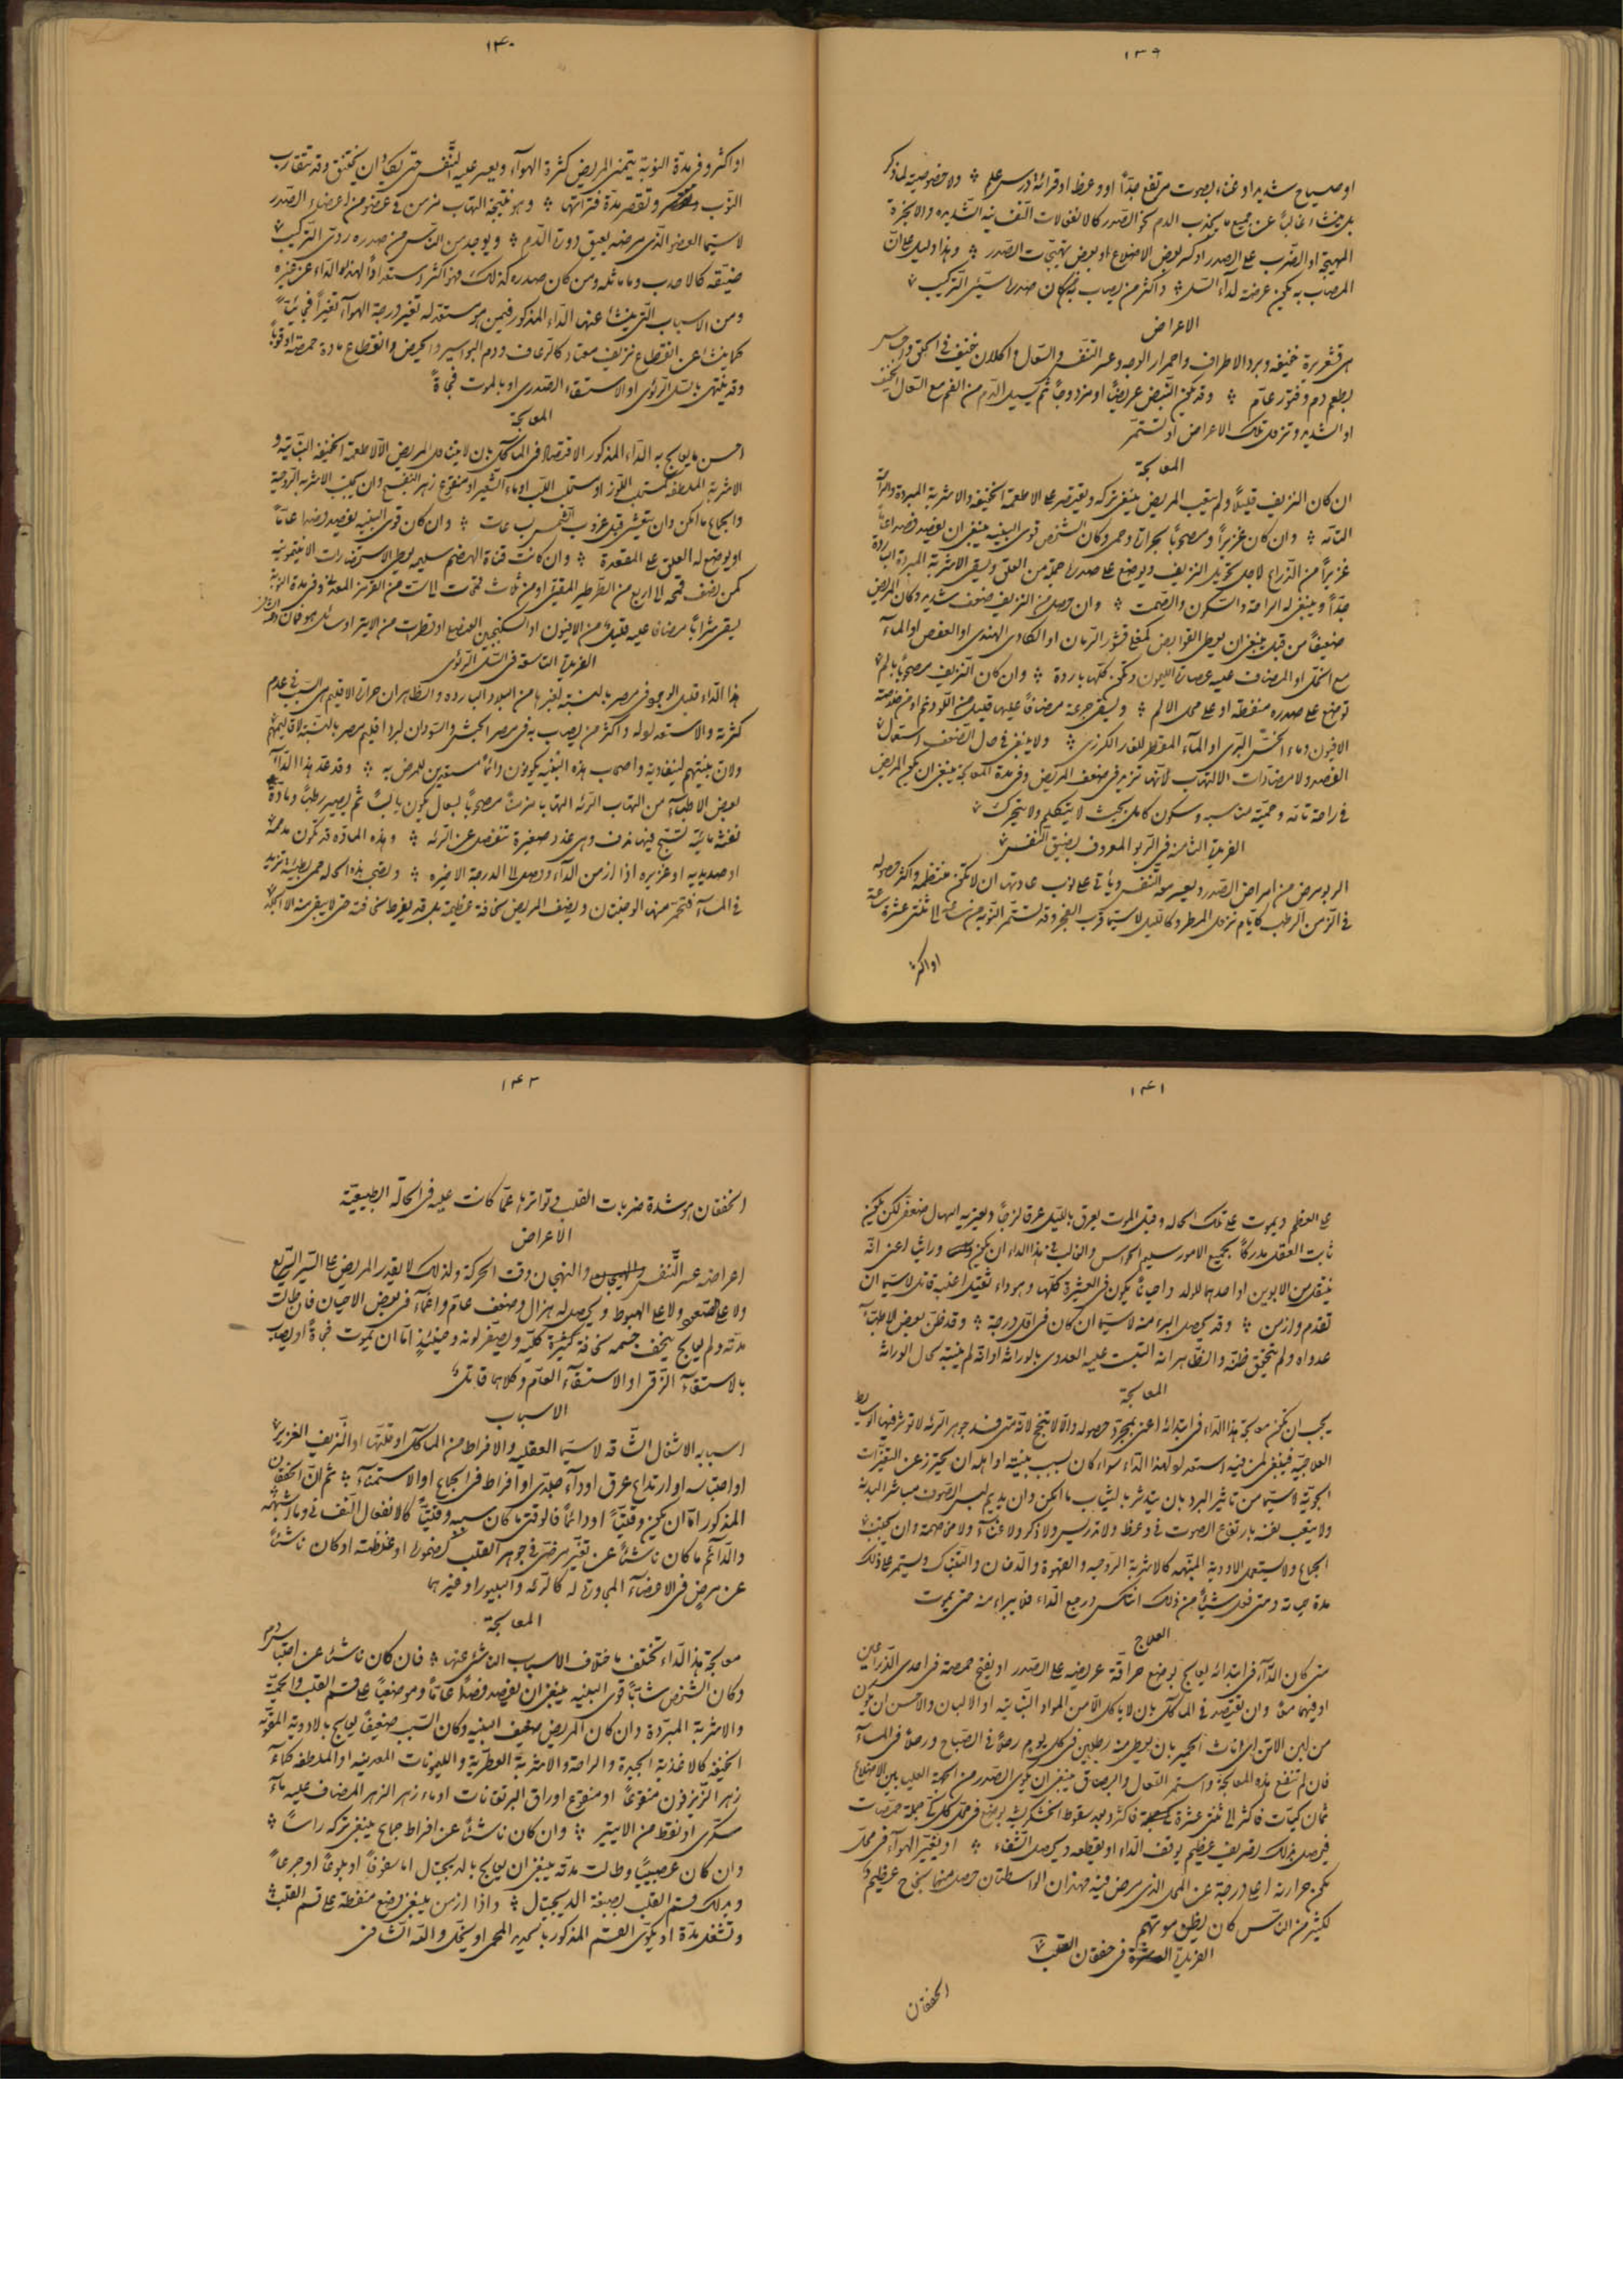 ١٣٩
او صياح شديد او غناء بصوت مرتفع جدّاً او وعظ او قرائة درس علم ۞ ولا خصوصية لما ذكر
بل ينشاء غالباً عن جميع ما يجذب الدم نحو الصّدر كالانفعالات النّفسانيه الشّديده والابخرة
المهيّجة او الضّرب على الصدر او كسر بعض الاضلاع او بعض تهيّجات الصّدر ۞ وهذا دليل على انّ
المصاب به يكون عرضة لداء السّلّ ۞ واكثر من يصاب به من كان صدره سيّئ التّركيب
الاعراض
هى قشعريرة خفيفه وبرد الاطراف واحمرار الوجه وعسر التنفّس والسّعال واكلان خفيف فى الحلق واحساس
بطعم دم وفتور عامّ ۞ وقد يكون النّبض عريضاً او مزدوجاً ثم يسيل الدّم من الفم مع السّعال الخفيف
او الشديد وتزول تلك الاعراض او تستمّر
المعالجة
ان كان النزيف قليلاً ولم يتعب المريض ينبغى تركه ويقتصر على الاطعمة الخفيفه والاشربة المبرّدة والرّاحة
التّامّه ۞ وان كان غزيراً ومصحوباً بحرارة وحمى وكان الشخص قوى البنيه ينبغى ان يفصد فصداً عامّاً
غزيراً من الذّراع لاجل تحويل النزيف ويوضع على صدره جملة من العلق ويسقى الاشربة المبرّدة الباردة
جدّاً وينبغى له الراحة والسّكون والصّمت ۞ وان حصل من النزيف ضعف شديد وكان المريض
ضعيفاً من قبل ينبغى ان يعطى القوابض كمغلى قشور الرّمان او الكاد الهندى او العفص او الماء
مع الخلّ او المضاف عليه عصارة الليمون وتكون كلّها باردة ۞ وان كان النّزيف مصحوباً بالم
توضع على صدره منفطة او على محل الالم ۞ ويسقى جرعة مضافاً عليها قليل من اللّودنم او من خلاصة
الافيون وماء الخسّ البرّى او الماء المقطر للغار الكرزى ۞ ولا ينبغى فى حال الضّعف استعمال
الفصد ولا مضادّات الالتهاب لانّها تزيد فى ضعف المريض وفى مدة المعالجة ينبغى ان يكون المريض
فى راحة تامّه وحميّة مناسبه وسكون كامل بحيث لا يتكلّم ولا يتحرك
الفريدة الثامنة فى الرّبو المعروف بضيق النّفس
الربو مرض من امراض الصّدر ويعسر معه التّنفّس ويأتى على نوب عادتها ان لا تكون منتظمه واكثر حصوله
فى الزّمن الرّطب كايّام نزول المطر وكالليل لا سيّما قرب الفجر وقد تستمّر النّوبة من ساعة الى ثنتى عشرة ساعة
او اكثر
١٤٠
او اكثر وفى مدّة النوبة يتمنى المريض كثرة الهوآء ويعسر عليه التّنفّس حتى يكاد ان يختنق وقد تتقارب
النّوب وتقصر مدّة فتراتها ۞ وهو نتيجة التهاب مزمن فى عضو من اعضاء الصّدر
لا سيّما العضو الّذى مرضه يعيق دورة الدّم ۞ ويوجد من النّاس من صدره ردئ التّركيب
ضيّقه كالاحدب وما ماثله ومن كان صدره كذلك فهو اكثر استعداداً لهذا الدّاء عن غيره
ومن الاسباب التى ينشاء عنها الدّاء المذكور فيمن هو مستعد له تغير درجة الهوآء تغيراً فجائيّاً
كما ينشاء عن انقطاع نزيف معتاد كالرّعاف ودم البواسير والحيض وانقطاع مادة حمصة او قوباً
وقد ينتهى بالسلّ الرّئوى او الاستسقاء الصّدرى او بالموت فجأةً
المعالجة
احسن ما يعالج به الدّاء المذكور الاقتصاد فى المآكل بان لا يتناول المريض الّا الاطعمة الخفيفه النّباتية و
الاشربة الملطّفه كمستحلب اللّوز او مستحلب اللّبّ او ماء الشّعير او منقوع زهر البنفسج وان يجتنب الاشربة الرّوحيّة
والجماع ما امكن وان يتعشى قبل غروب الشّمس بساعات ۞ وان كان قوى البنيه يفصد فصداً عامّاً
او يوضع له العلق على المقعدة ۞ وان كانت قناة الهضم سليمه يعطى الاستحضارات الانتيمونيه
كمن نصف قمحه الى اربع من الطّرطير المقيّئ او من ثلاث قمحات الى ست من القرمز المعدنى وفى مدة النّوبة
يسقى شراباً مضافا عليه قليل من الافيون او السكنجبين العنصلى او قطرات من الايتر او سائل هوفمان
الفريدة التاسعة فى السّل الرّئوى
هذا الدّاء قليل الوجود فى مصر بالنسبة لغيرها من البلاد البارده والظاهر ان حرارة الاقليم هى السّبب فى عدم
كثرته والاستعداد له واكثر من يصاب به فى مصر الحبش والسّودان لبرد اقليم مصر بالنّسبة لاقاليمهم
ولانّ بنيتهم لينفاوية واصحاب هذه البنيه يكونون دائماً مستعدين للمرض به ۞ وقد عدّ هذا الدّاء
بعض الاطباء من التهاب الرّئه التهابا مزمناً مصحوباً بسعال يكون يابساً ثم يصير رطباً ومادة
نفثه مائيّة تسبح فيها ندف وهى غدد صغيرة تنفصل عن الرّئه ۞ وهذه المادّه قد تكون مدممة
او صديديه او غزيره اذا ازمن الدّاء ووصل الى الدرجة الاخيره ۞ ويصحب هذه الحاله حمى بطيئة تزيد
فى المساء فتحمر منها الوجنتان ويضعف المريض نحافة عظيمة بل قد يفرط نحافته حتى لا يبقى منه الا الجلد
١٤١
على العظم ويموت على تلك الحاله وقبل الموت يعرق بالليل عرقا لزجاً ويعتريه اسهال مضعف لكن يكون
ثابت العقل مدركاً بجميع الامور سليم الحواس والغالب فى هذا الداء ان يكون وراثياً اعنى انّه
ينتقل من الابوين او احدهما للولد واحياناً يكون فى العشيرة كلّها وهو داء ثقيل اغلبه قاتل لا سيّما ان
تقدم وازمن ۞ وقد يحصل البرء منه لا سيّما ان كان فى اقل درجة ۞ وقد ظنّ بعض الاطبّاء
عدواه ولم يتحقّق ظنّه والظّاهر انه التبست عليه العدوى بالوراثة او انّه لم ينتبه لحال الوراثة
المعالجة
يجب ان تكون معالجة هذا الدّاء فى ابتدائه اعنى بمجرّد حصوله والّا لا تنجح لانّه متى فسد جوهر الرّئه لا تؤثر فيها الوسائط
العلاجيّه فينبغى لمن فيه استعداد لهذا الدّاء سواء كان بسبب بنيته او اهله ان يحترز عن التغيّرات
الجويّة لا سيّما من تأثير البرد بان يتدثر بالثياب ما امكن وان يديم لبس الصّوف مباشر البدنه
ولا يتعب نفسه بارتفاع الصوت فى وعظ ولا تدريس ولا ذكر ولا غناء ولا مزحمة وان يجتنب
الجماع ولا يستعمل الادوية المنبّهه كالاشربة الرّوحيه والقهوة والدّخان والتّنباك ويستمر على ذلك
مدة حياته ومتى فعل شيئاً من ذلك انتكس ورجع الدّاء فلا يبراء منه حتى يموت
العلاج
متى كان الدّاء فى ابتدائه يعالج بوضع حراقة عريضه على الصّدر او يفتح حمصة فى احدى الذّراعين
او فيهما معاً وان يقتصد فى المآكل بان لا ياكل الّا من المواد النّباتيه او الالبان والاحسن ان يكون
من لبن الاتن اى اناث الحمير بان يعطى منه رطلين فى كل يوم رطلاً فى الصّباح ورطلاً فى المساء
فان لم تنفع هذه المعالجة واستمر السّعال والبصاق ينبغى ان يكوى الصّدر من الجهة العليا بين الاضلاع
ثمان كيات فاكثر الى ثنتى عشرة فاكثر وبعد سقوط الخشكريشه يوضع فى محل كل كيّة جملة حمصات
فيحصل بذلك تصريف عظيم يوقف الدّاء او يقطعه ويحصل الشّفاء ۞ او يتغيّر الهوآء فى محلّ
تكون حرارته اعلى درجة عن المحل الذى مرض فيه فهذان الواسطتان حصل منهما نجاح عظيم
لكثير من النّاس كان يظن موتهم
الفريدة العاشرة فى خفقان القلب
الخفقان
١٤٢
الخفقان هو شدة ضربات القلب وتواترها عمّا كانت عليه فى الحالة الطبيعيّة
الاعراض
اعراضه عسر التّنفس والنهجان وقت الحركة ولذلك لا يقدر المريض على السّير السّريع
ولا على الصّعود ولا على الهبوط ويحصل له هزال وضعف عامّ واغماء فى بعض الاحيان فان طالت
مدّته ولم يعالج ينحف جسمه نحافة كثيرة كلّيه ويصفرّ لونه وحينئذٍ امّا ان يموت فجأةً او يصاب
بالاستسقاء الزّقى او الاستسقاء العامّ وكلاهما قاتل
الاسباب
اسبابه الاشغال الشّاقه لا سيّما العقليه والافراط من المآكل او قلّتها او النّزيف الغزير
او احتباسه او ارتداع عرق او داء جلدى او افراط فى الجماع او الاستمناء ۞ ثم انّ الخفقان
المذكور امّا ان يكون وقتيّاً او دائماً فالوقتى ما كان سببه وقتيّاً كالانفعال النّفسانى وما اشبهه
والدّائم ما كان ناشئاً عن تغيّر مرضى فى جوهر القلب كضموره او غلظته او كان ناشئاً
عن مرض فى الاعضاء المجاورة له كالرّئه والبليورا وغيرهما
المعالجة
معالجة هذا الدّاء تختلف باختلاف الاسباب الناشئ عنها ۞ فان كان ناشئاً عن احتباس دم
وكان الشّخص شابّاً قوىّ البنيه ينبغى ان يفصد فصداً عامّاً وموضعيّاً على قسم القلب والحميّة
والاشربة المبرّدة وان كان المريض ضعيف البنيه وكان السّبب ضعيفاً يعالج بالادوية المقوّيه
الخفيفه كالاغذية الجيدة والراحة والاشربة العطريّة والليمونات المعدنيه او الملطفه كماء
زهر الزّيزفون منقوعاً او منقوع اوراق البرتقانات او ماء زهر الزهر المضاف عليه ماء
سكّرى او نقط من الايتير ۞ وان كان ناشئاً عن افراط جماع ينبغى تركه رأساً ۞
وان كان عصبيّاً وطالت مدّته ينبغى ان يعالج بالديجيتال اما سفوفاً او بلوعاً او جرعاً
ويدلك قسم القلب بصبغة الديجيتال ۞ واذا ازمن ينبغى وضع منفطة على قسم القلب
وتشغل مدّة او يكوى القسم المذكور بالحديد المحمى او يخلّ والله الشّافى